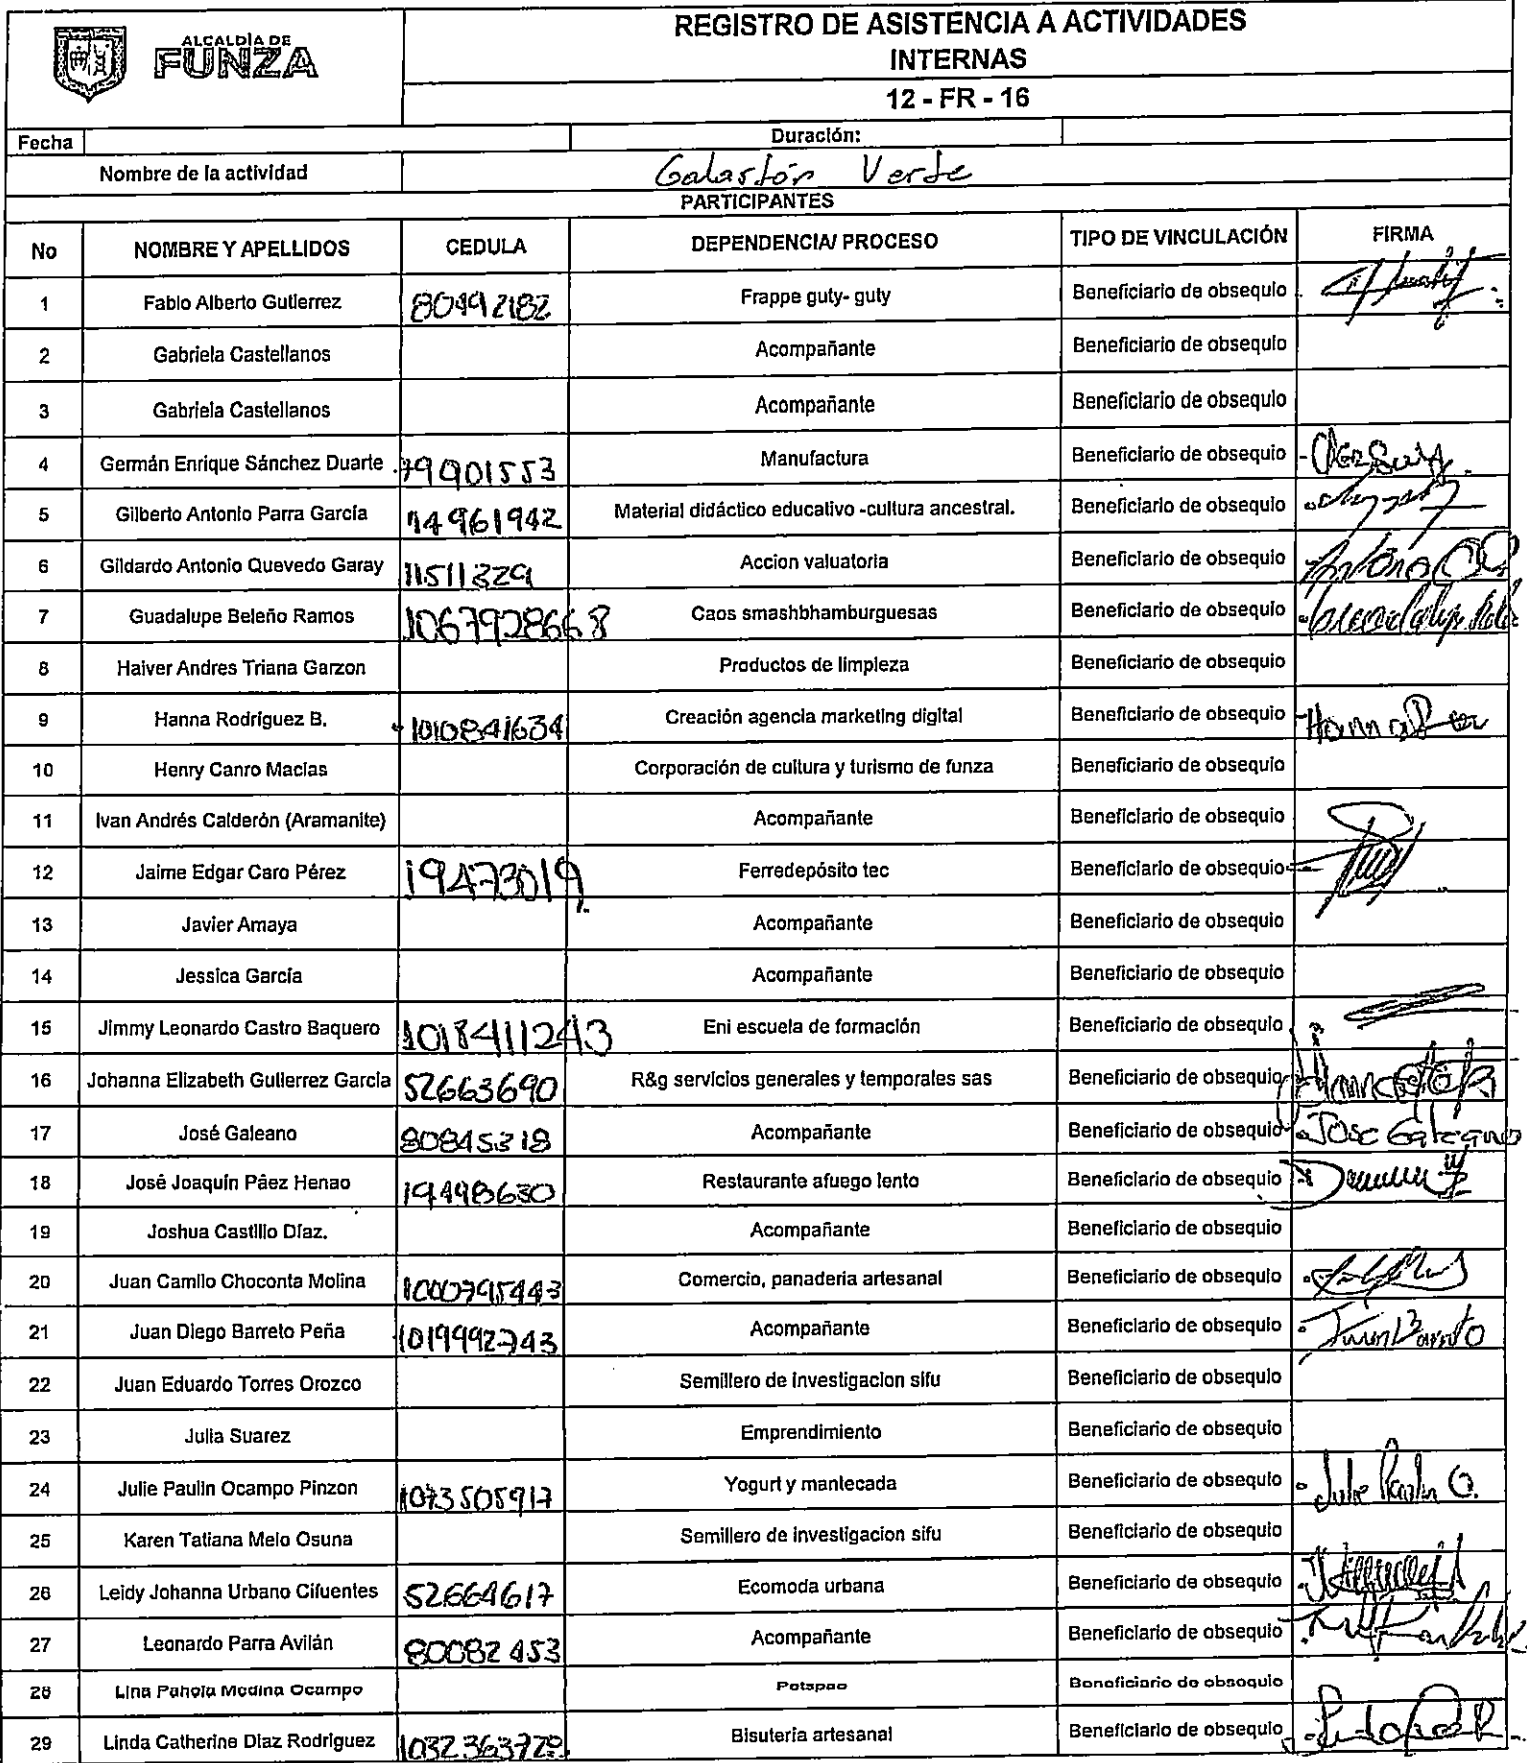 ALCALDÍA DE
FUNZA
REGISTRO DE ASISTENCIA A ACTIVIDADES
INTERNAS
12 - FR - 16
Fecha Duración:
Nombre de la actividad Galardón Verde
PARTICIPANTES
No NOMBRE Y APELLIDOS CEDULA DEPENDENCIA/ PROCESO TIPO DE VINCULACIÓN FIRMA
1 Fabio Alberto Gutierrez 80492182 Frappe guty- guty Beneficiario de obsequio
2 Gabriela Castellanos Acompañante Beneficiario de obsequio
3 Gabriela Castellanos Acompañante Beneficiario de obsequio
4 Germán Enrique Sánchez Duarte 79901553 Manufactura Beneficiario de obsequio
5 Gilberto Antonio Parra García 14961942 Material didáctico educativo -cultura ancestral. Beneficiario de obsequio
6 Gildardo Antonio Quevedo Garay 11511329 Accion valuatoria Beneficiario de obsequio Antonio
7 Guadalupe Beleño Ramos 1067928668 Caos smashbhamburguesas Beneficiario de obsequio Guadalupe
8 Haiver Andres Triana Garzon Productos de limpieza Beneficiario de obsequio
9 Hanna Rodríguez B. 1010841634 Creación agencia marketing digital Beneficiario de obsequio Hanna
10 Henry Canro Macias Corporación de cultura y turismo de funza Beneficiario de obsequio
11 Ivan Andrés Calderón (Aramanite) Acompañante Beneficiario de obsequio
12 Jaime Edgar Caro Pérez 19473019 Ferredepósito tec Beneficiario de obsequio
13 Javier Amaya Acompañante Beneficiario de obsequio
14 Jessica García Acompañante Beneficiario de obsequio
15 Jimmy Leonardo Castro Baquero 1018411243 Eni escuela de formación Beneficiario de obsequio
16 Johanna Elizabeth Gutierrez Garcia 52663690 R&g servicios generales y temporales sas Beneficiario de obsequio
17 José Galeano 80845318 Acompañante Beneficiario de obsequio Jose Galeano
18 José Joaquín Páez Henao 19498630 Restaurante afuego lento Beneficiario de obsequio
19 Joshua Castillo Díaz. Acompañante Beneficiario de obsequio
20 Juan Camilo Choconta Molina 1000795443 Comercio, panaderia artesanal Beneficiario de obsequio
21 Juan Diego Barreto Peña 1019992743 Acompañante Beneficiario de obsequio Juan Barreto
22 Juan Eduardo Torres Orozco Semillero de investigacion sifu Beneficiario de obsequio
23 Julia Suarez Emprendimiento Beneficiario de obsequio
24 Julie Paulin Ocampo Pinzon 1073505917 Yogurt y mantecada Beneficiario de obsequio Julie Paulin O.
25 Karen Tatiana Melo Osuna Semillero de investigacion sifu Beneficiario de obsequio
26 Leidy Johanna Urbano Cifuentes 52664617 Ecomoda urbana Beneficiario de obsequio
27 Leonardo Parra Avilán 80082453 Acompañante Beneficiario de obsequio
28 Lina Pahola Medina Ocampo Potspao Beneficiario de obsequio
29 Linda Catherine Diaz Rodriguez 1032363728 Bisutería artesanal Beneficiario de obsequio